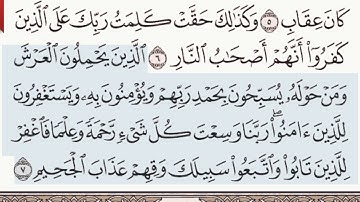 كَانَ عِقَابِ ٥ وَكَذَٰلِكَ حَقَّتْ كَلِمَتُ رَبِّكَ عَلَى الَّذِينَ
كَفَرُوٓا۟ أَنَّهُمْ أَصْحَٰبُ النَّارِ ٦ الَّذِينَ يَحْمِلُونَ الْعَرْشَ
وَمَنْ حَوْلَهُۥ يُسَبِّحُونَ بِحَمْدِ رَبِّهِمْ وَيُؤْمِنُونَ بِهِۦ وَيَسْتَغْفِرُونَ
لِلَّذِينَ ءَامَنُوا۟ ۖ رَبَّنَا وَسِعْتَ كُلَّ شَىْءٍ رَّحْمَةً وَعِلْمًا فَاغْفِرْ
لِلَّذِينَ تَابُوا۟ وَاتَّبَعُوا۟ سَبِيلَكَ وَقِهِمْ عَذَابَ الْجَحِيمِ ٧